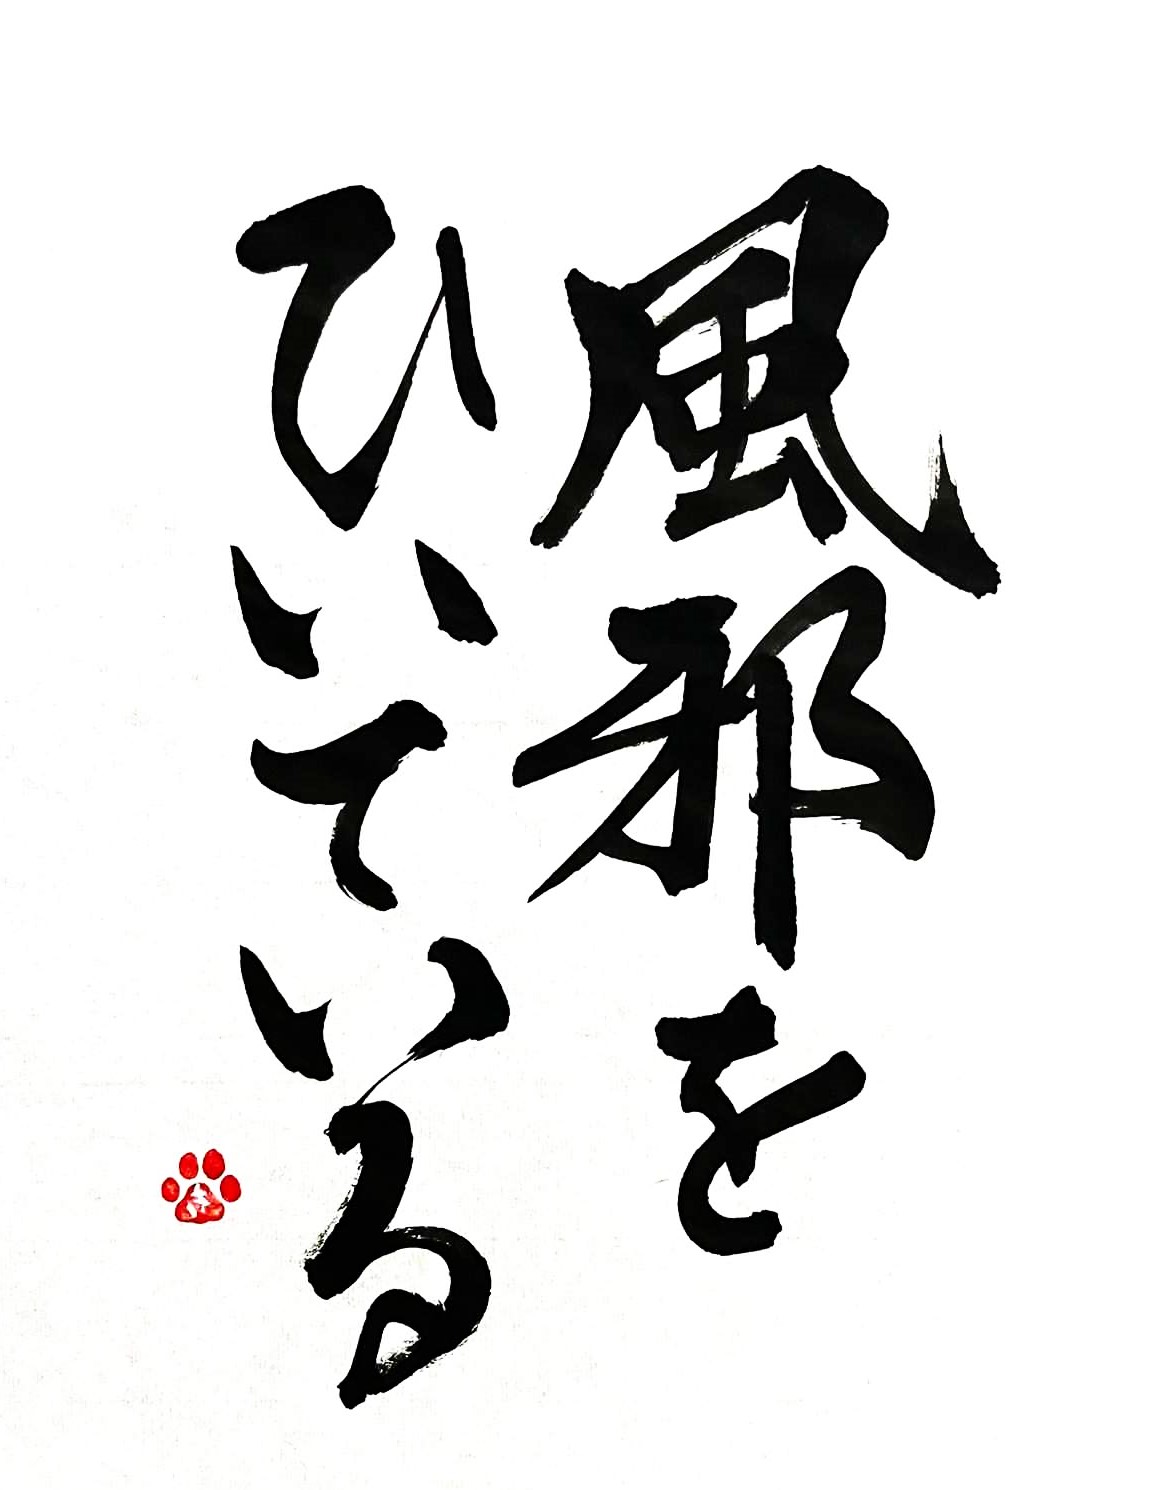 風邪を
ひいている